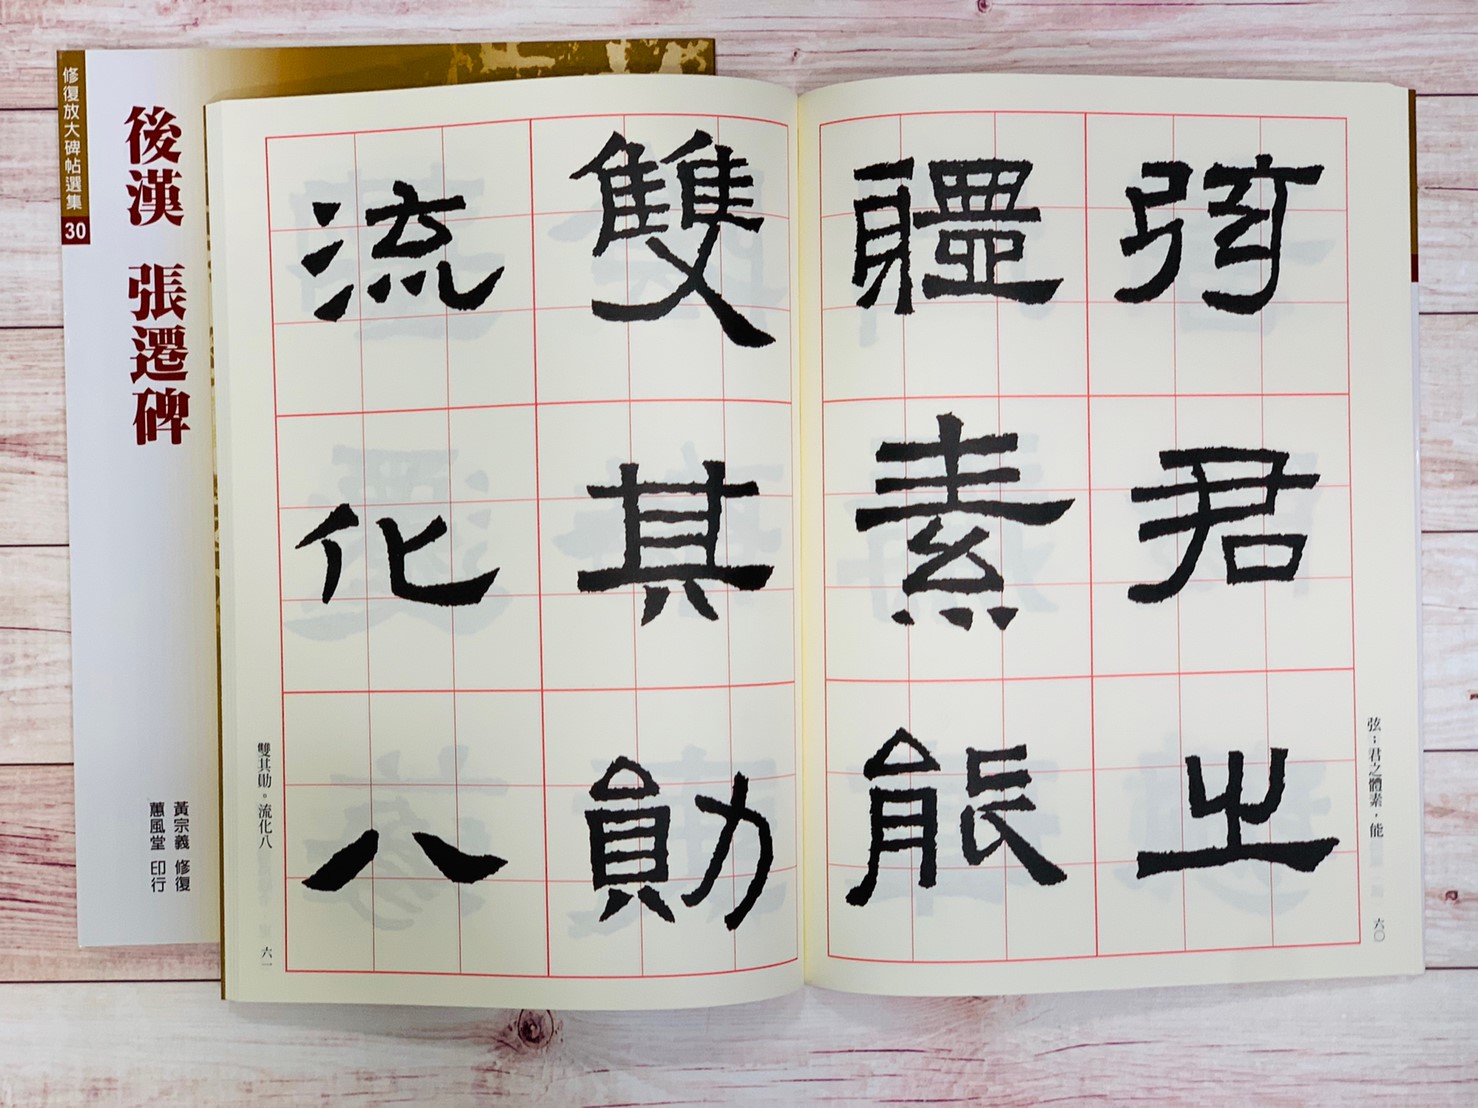 修復放大碑帖選集
30
後漢 張遷碑
黃宗義 修復
蕙風堂 印行
弦君之
體素能
雙其勛
流化八
弦；君之體素，能
六〇
雙其勛。流化八
六一